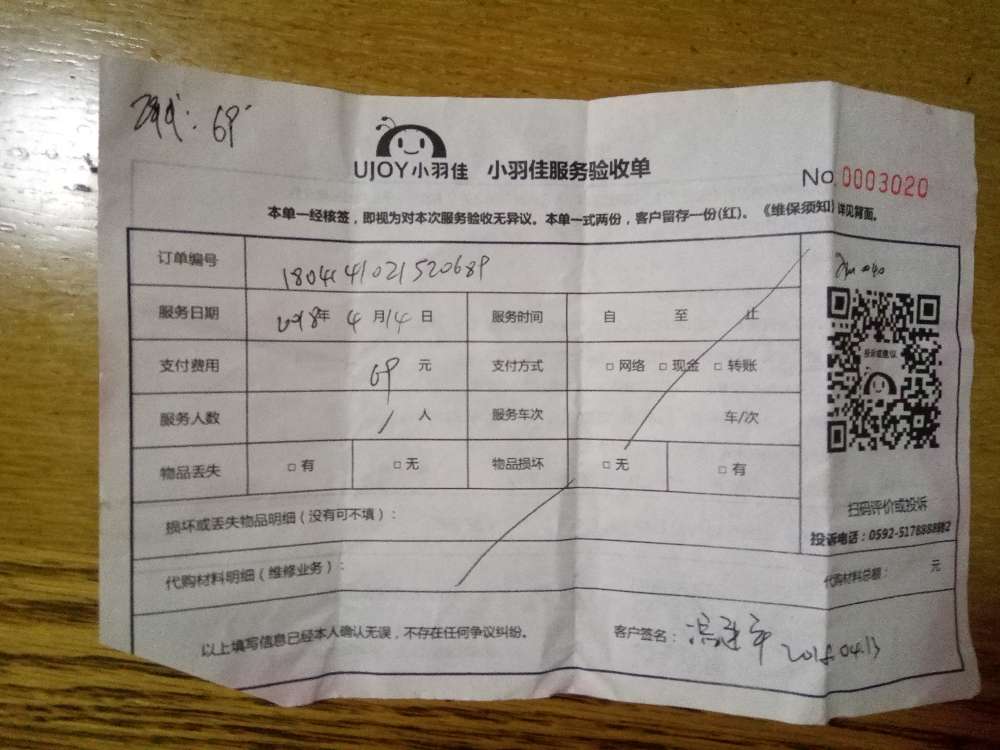 69
UJOY小羽佳 小羽佳服务验收单
No 0003020
本单一经核签，即视为对本次服务验收无异议。本单一式两份，客户留存一份(红)。《维保须知》详见背面。
订单编号
服务日期 2018年 4月14日 服务时间 自 至 止
支付费用 69 元 支付方式 □ 网络 □ 现金 □ 转账
服务人数 1 人 服务车次 车/次
物品丢失 □ 有 □ 无 物品损坏 □ 无 □ 有
投诉或建议
扫码评价或投诉
投诉电话：0592-5178888转2
损坏或丢失物品明细（没有可不填）：
代购材料明细（维修业务）： 代购材料总额： 元
以上填写信息已经本人确认无误，不存在任何争议纠纷。 客户签名： 2018.04.13